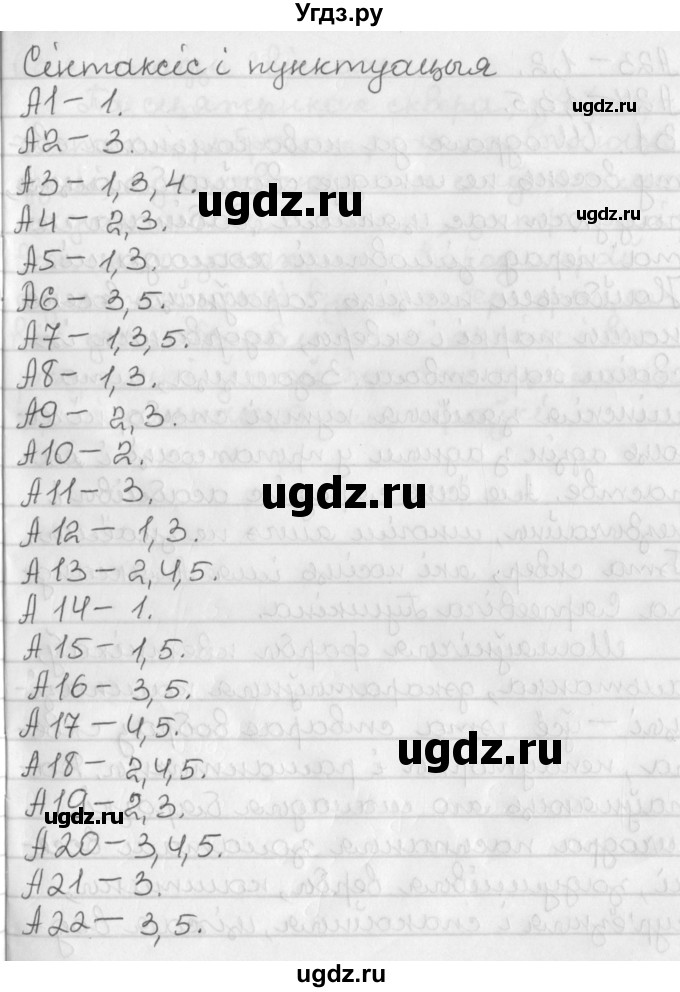 Угдз.ру
Сінтаксіс і пунктуацыя
А1 – 1.
ugdz.ru
А2 – 3.
А3 – 1, 3, 4.
ugdz.ru
ugdz.ru
А4 – 2, 3.
А5 – 1, 3.
А6 – 3, 5.
А7 – 1, 3, 5.
А8 – 1, 3.
А9 – 2, 3.
А10 – 2.
А11 – 3.
ugdz.ru
А12 – 1, 3.
А13 – 2, 4, 5.
А14 – 1.
А15 – 1, 5.
А16 – 3, 5.
А17 – 4, 5.
ugdz.ru
А18 – 2, 4, 5.
А19 – 2, 3.
ugdz.ru
А20 – 3, 4, 5.
А21 – 3.
А22 – 3, 5.
ugdz.ru